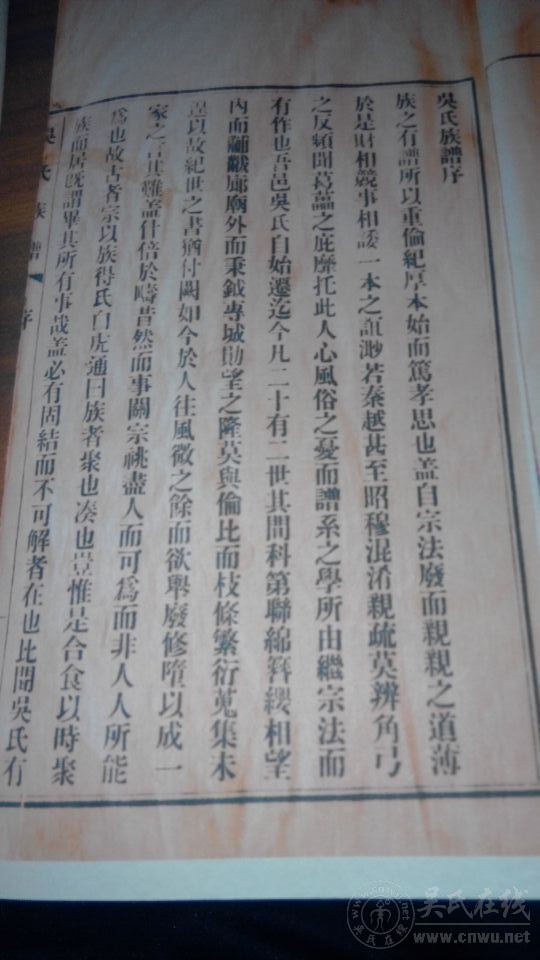 吳氏族譜序
族之有譜所以重倫紀厚本始而篤孝思也蓋自宗法廢而親親之道薄
於是財相競事相諉一本之誼渺若秦越甚至昭穆混淆親疏莫辨角弓
之反頻聞葛藟之庇靡托此人心風俗之憂而譜系之學所由繼宗法而
有作也吾邑吳氏自始遷迄今凡二十有二世其間科第聯綿簪纓相望
內而黼黻廊廟外而秉鉞專城勛望之隆莫與倫比而枝條繁衍蒐集未
遑以故紀世之書猶付闕如今於人往風微之餘而欲舉廢修隳以成一
家之言其難蓋什倍於疇昔然而事關宗祧盡人而可為而非人人所能
為也故古者宗以族得氏白虎通曰族者聚也凑也豈惟是合食以時聚
族而居既謂畢其所有事哉蓋必有固結而不可解者在也比聞吳氏有
吳氏族譜 序
吳氏在线
www.cnwu.net